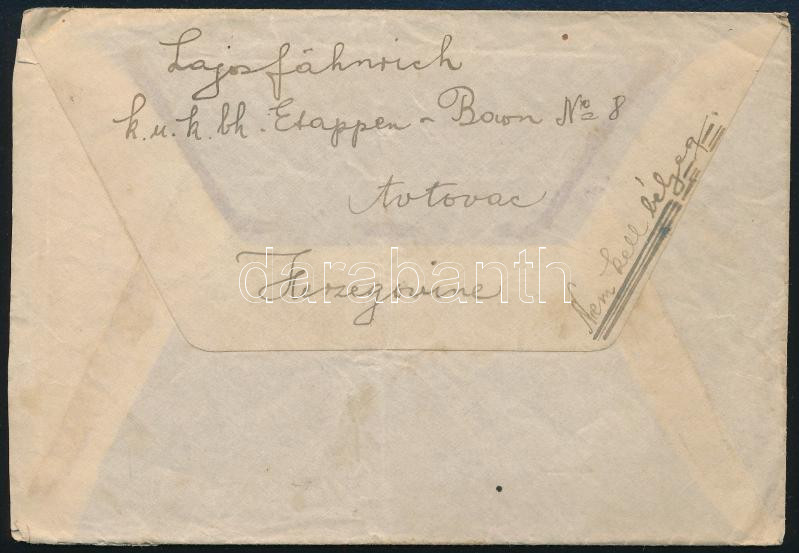 Lajos fähnrich
k. u. k. bh. Etappen - Baon No 8
Avtovac
Herzegovine
Nem kell bélyeg.
darabanth